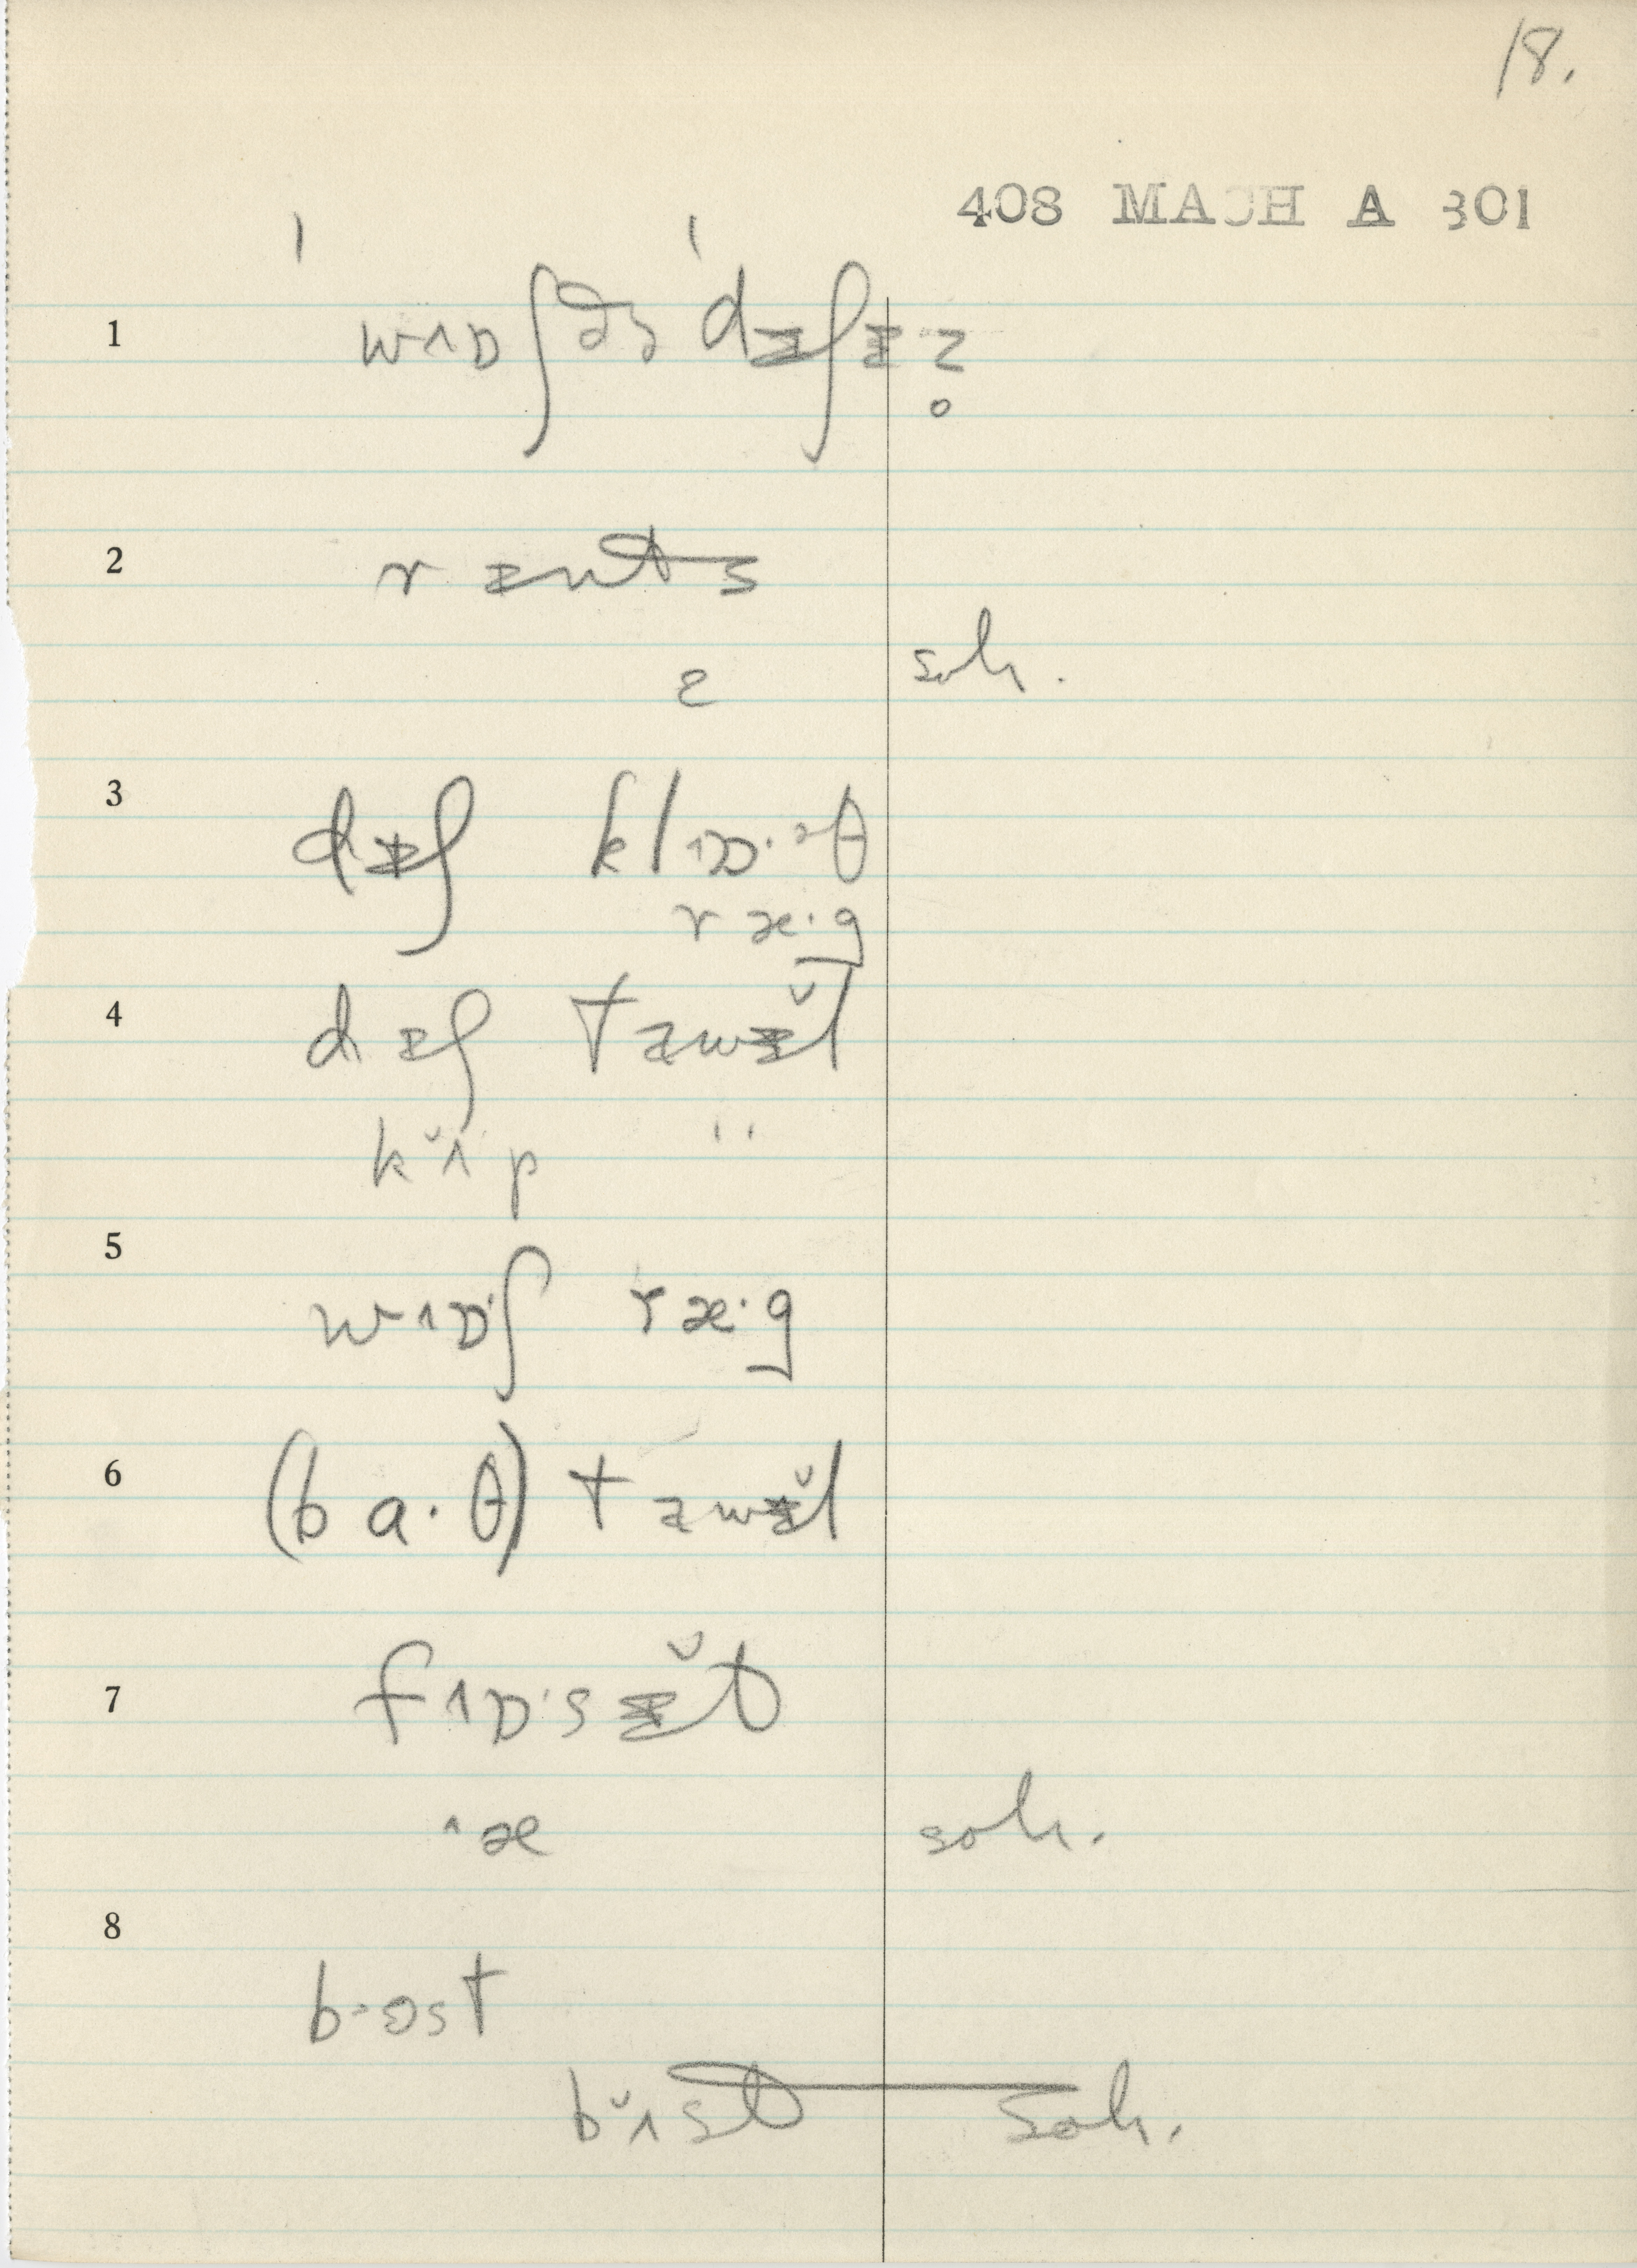 18.
408 MACH A 301
1 wʌɒʃðə dᵻʃᵻz̥
2 rᵻnts
ɛ soh.
3 dᵻʃ klʌɒ·əθ
ræ·g
4 dᵻʃ taᵻwᵻ̆l
kʌ̆p ''
5 wʌɒ·ʃ ræ·g
6 (ba·θ) tawᵻ̆l
7 fʌɒ·sᵻ̆t
^æ soh.
8 b·ost
bʌ̆st soh.